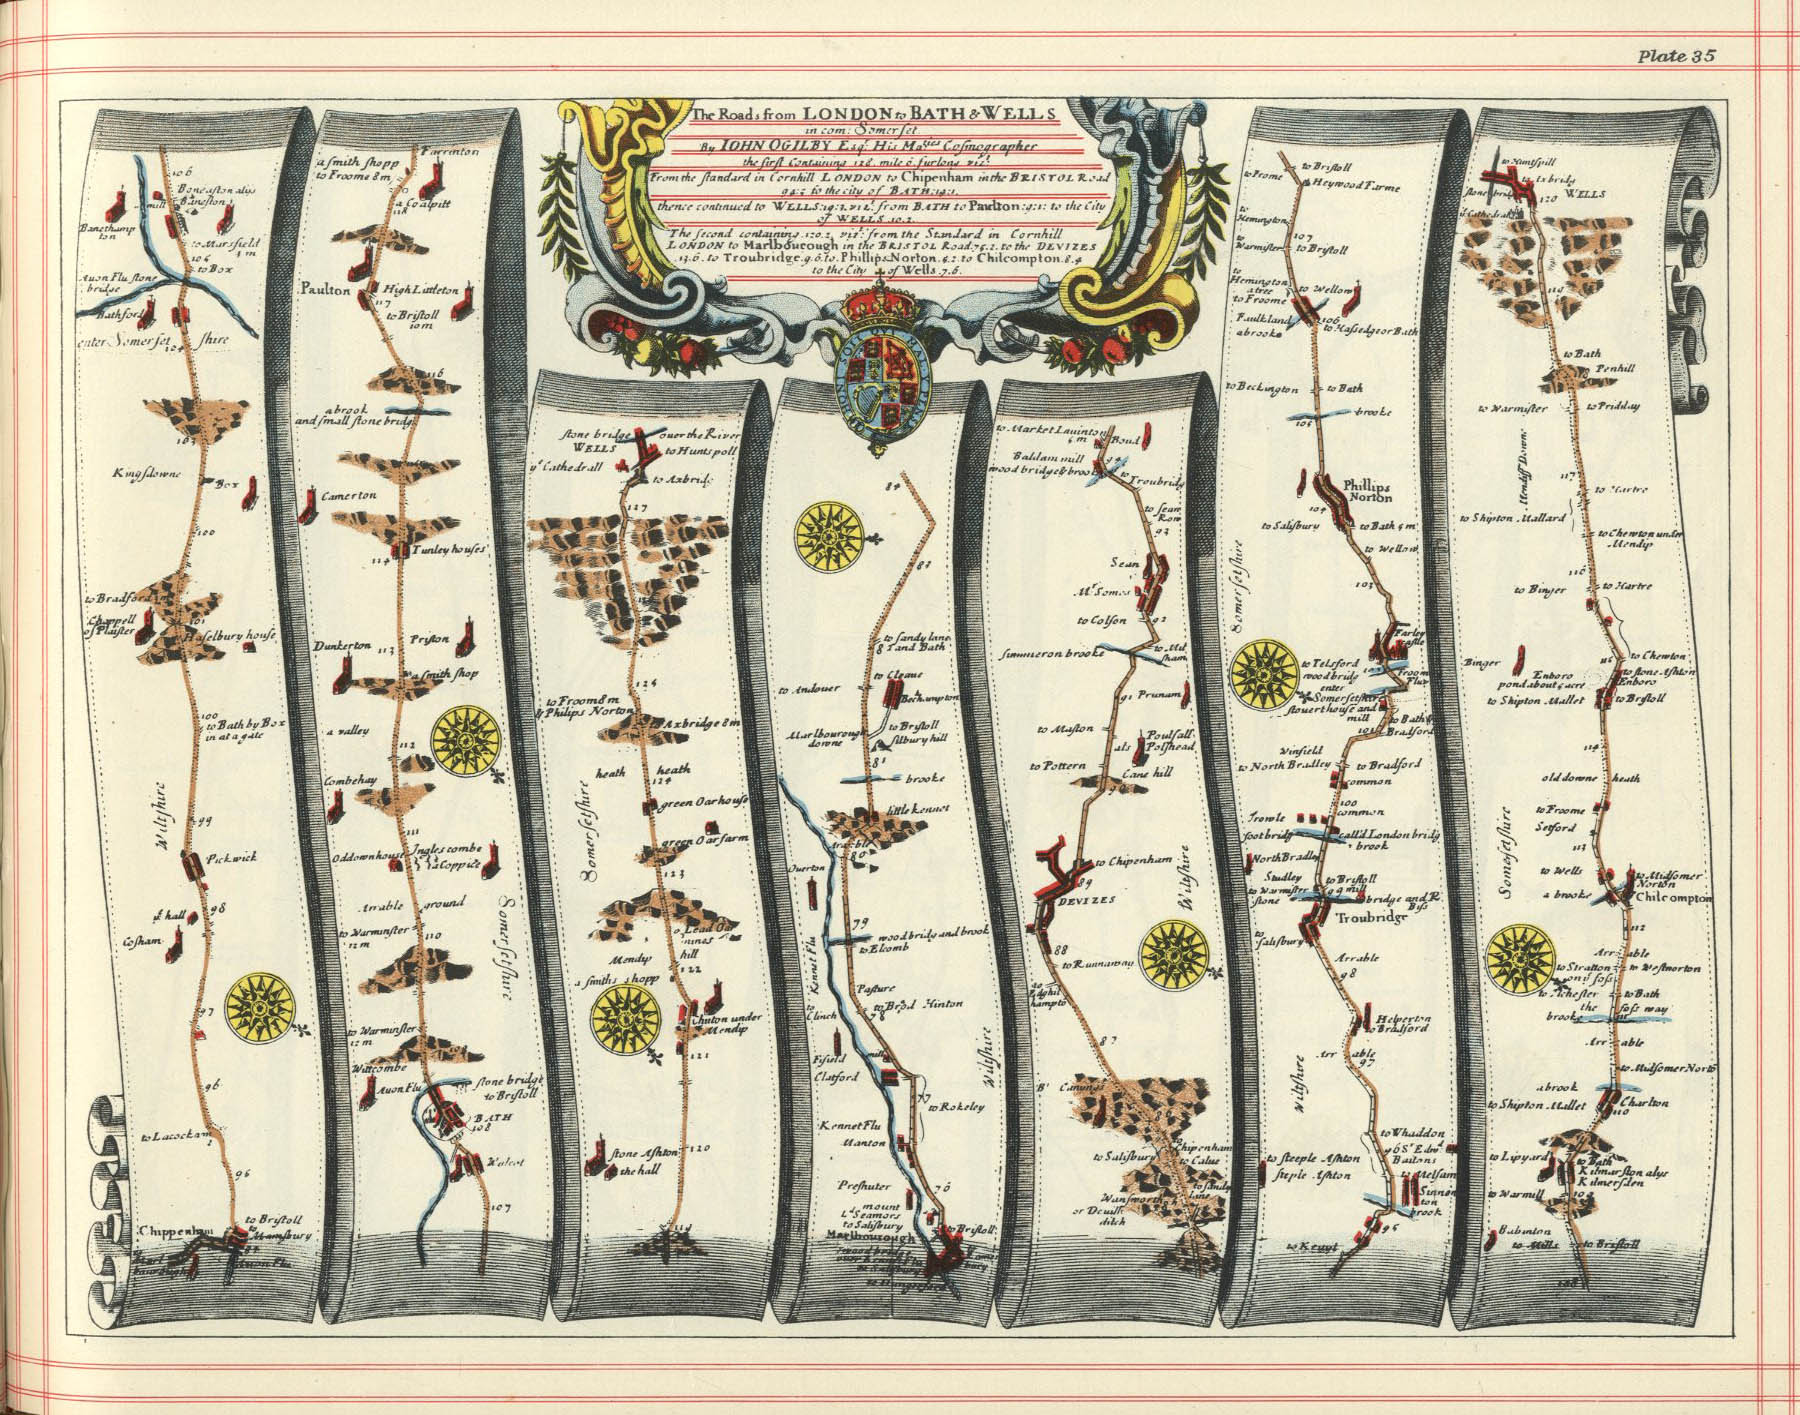 Plate 35
The Roads from LONDON to BATH & WELLS
in com: Somerset
By IOHN OGILBY Esqr. His Matyes Cosmographer
the first Containing 128. mile 6. furlong vizt.
From the Standard in Cornhill LONDON to Chipenham in the BRISTOL ROAD
94:2 to the city of BATH:14:1.
thence continued to WELLS:19:3,vizt. from BATH to Paulton:9:1: to the City
of WELLS.10.2.
The second containing.120.2, vizt. from the Standard in Cornhill
LONDON to Marlbourough in the BRISTOL Road.75.2. to the DEVIZES
.13.6. to Troubridge.9.6.To. Phillips Norton.4.2. to Chilcompton.8.4
to the City of Wells.7.6.
106
Bathford
enter Somerset shire
104
103
Kingsdowne
Box
to Bradford
Chappell
of Plaister
101
Haselbury house
100
to Bath by Box
in at a gate
Wiltshire
99
Pickwick
98
Cosham
97
96
to Lacockam
Chippenham
to Bristoll
to
Mamsbury
Avon Flu
to Marsfield
to Box
Avon Flu stone
bridge
mill
Farrinton
a smith shopp
to Froome 8m
a Coalpitt
118
Paulton
High Littleton
117
to Bristoll
10m
116
a brook
and small stone bridg
Camerton
Tunley houses
114
Dunkerton
Priston
113
a smith shop
a valley
112
Combehay
111
Oddownhouse
Inglescombe
a Coppice
Arrable ground
Somersetshire
to Warminster
12 m
110
to Warminster
12 m
Witcombe
Avon Flu
stone bridge
to Bristoll
BATH
108
Walcot
107
stone bridge over the River
WELLS
to Huntspoll
ye Cathedrall
to Axbridg
127
125
to Froom 8m
& Philips Norton
Axbridge 8m
heath heath
124
green Oar house
green Oar farm
Somersetshire
123
Lead Oar
mines
Mendip hill
122
a smiths shopp
Chuton under
Mendip
121
stone Ashton
the hall
120
119
84
83
to sandy lane
and Bath
to Cleave
to Andover
Beckhampton
to Bristoll
Marlbourough
downe
Silbury hill
81
brooke
little kennet
80
Overton
79
wood bridg and brook
to Elcomb
Kennet Flu
Pasture
to Brod Hinton
78
to
Clinch
Fifield
mill
Clatford
77
to Rokeley
Kennet Flu
Manton
76
Preshuter
mount
Ld Seamors
to Salisbury
Marlbourough
to Bristoll
Wiltshire
to Market Lavinton
6 m
Boud
94
Baldam mill
wood bridge & brook
to Troubridg
to Sean
Row
93
Sean
Mr Somes
to Colson
92
summeron brooke
to Mil
sham
91
Prunam
to Maston
Poulsall
als Polshead
to Pottern
Cane hill
to Chipenham
89
DEVIZES
Wiltshire
88
to Runnaway
87
Bp Canyngs
Chipenham
to Calne
to Salisbury
to sandy
lane
Wansworth
or Devills
ditch
to Bristoll
to Frome
Heywood Farme
to
Hemington
107
to
Warmister
to Bristoll
to
Hemington
a tree
to Froome
to Wellow
Faulkland
106
a brooke
to Hassedge or Bath
to Beckington
to Bath
brooke
105
Phillips
Norton
104
to Salisbury
to Bath 5m
to Wellow
Somersetshire
103
Farley
castle
to Telsford
wood bridg
Froom
Flu
enter
Somersetshire
stouerthouse and
mill
to Bath &
Bradford
101
Winfield
to North Bradley
to Bradford
common
100
common
Trowle
foot bridg
call'd London bridg
brook
North Bradley
Studley
to Warmister
to Bristoll
99 mill
stone
bridge and R
Biss
Troubridge
to
Salisbury
Arrable
98
Helperton
to Bradford
Arr able
97
Wiltshire
to Whaddon
96 St Edwd
Baitons
to steeple Ashton
steple Ashton
Melsam
brook
to Keuyl
to Huntspill
to Axbridg
stone bridg
WELLS
120
ye Cathedrall
119
to Bath
Penhill
to Warmister
to Pridday
Mendiff Downe
117
to Hartre
to Shipton Mallard
to Chewton under
Mendip
116
to Binger
to Hartre
Binger
to Chewton
to stone Ashton
Enboro
pond about 4 acre
Enboro
to Shipton Mallet
to Bristoll
114
old downe heath
to Froome
Setford
113
to Wells
to Midsomer
Norton
a brooke
Chilcompton
112
Somersetshire
Arr able
to Stratton
on ye foss
to Westnorton
to Ilchester
to Bath
the foss way
brooke
Arr able
to Midsomer Norto
a brook
to Shipton Mallet
Charlton
110
to Lipyard
to Bath
Kilmarston alys
Kilmersden
to Warmill
109
Babinton
to Mills
to Bristoll
108